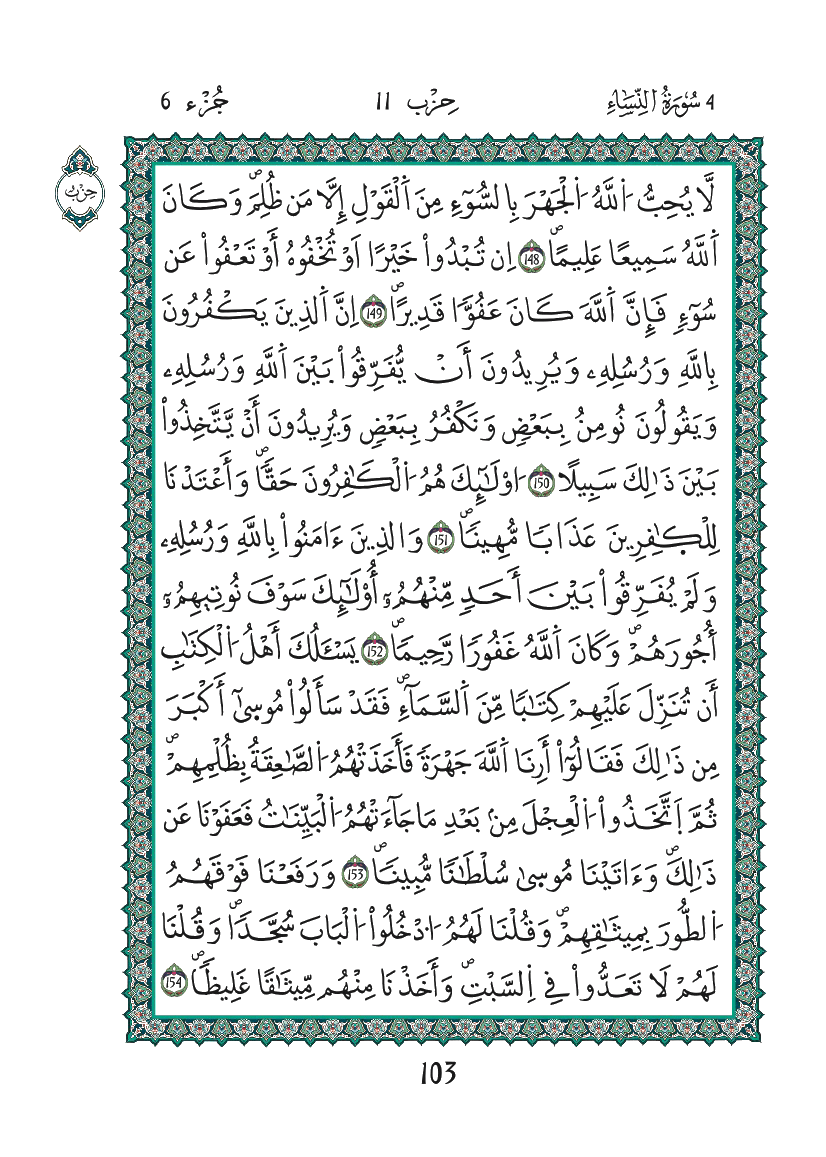 4 سُورَةُ النِّسَاءِ
حِزْب 11
جُزْء 6
حِزْب
لَّا يُحِبُّ اَ۬للَّهُ اُ۬لْجَهْرَ بِالسُّوٓءِ مِنَ اَ۬لْقَوْلِ إِلَّا مَن ظُلِمَۖ وَكَانَ
اَ۬للَّهُ سَمِيعًا عَلِيمًاۖ 148 اِن تُبْدُواْ خَيْرًا اَوْ تُخْفُوهُ أَوْ تَعْفُواْ عَن
سُوٓءٖ فَإِنَّ اَ۬للَّهَ كَانَ عَفُوّٗا قَدِيرًاۖ 149 اِنَّ اَ۬لذِينَ يَكْفُرُونَ
بِاللَّهِ وَرُسُلِهِۦ وَيُرِيدُونَ أَنْ يُّفَرِّقُواْ بَيْنَ اَ۬للَّهِ وَرُسُلِهِۦ
وَيَقُولُونَ نُومِنُ بِبَعْضٖ وَنَكْفُرُ بِبَعْضٖ وَيُرِيدُونَ أَنْ يَّتَّخِذُواْ
بَيْنَ ذَٰلِكَ سَبِيلًا 150 اُوْلَٰٓئِكَ هُمُ اُ۬لْكَٰفِرُونَ حَقّٗاۖ وَأَعْتَدْنَا
لِلْكَٰفِرِينَ عَذَابٗا مُّهِينٗاۖ 151 وَالذِينَ ءَامَنُواْ بِاللَّهِ وَرُسُلِهِۦ
وَلَمْ يُفَرِّقُواْ بَيْنَ أَحَدٖ مِّنْهُمُۥٓ أُوْلَٰٓئِكَ سَوْفَ نُوتِيهِمُۥٓ
أُجُورَهُمْۖ وَكَانَ اَ۬للَّهُ غَفُورٗا رَّحِيمٗاۖ 152 يَسْـَٔلُكَ أَهْلُ اُ۬لْكِتَٰبِ
أَن تُنَزِّلَ عَلَيْهِمْ كِتَٰبٗا مِّنَ اَ۬لسَّمَآءِۖ فَقَدْ سَأَلُواْ مُوسَىٰٓ أَكْبَرَ
مِن ذَٰلِكَ فَقَالُوٓاْ أَرِنَا اَ۬للَّهَ جَهْرَةٗ فَأَخَذَتْهُمُ اُ۬لصَّٰعِقَةُ بِظُلْمِهِمْۖ
ثُمَّ اَ۪تَّخَذُواْ اُ۬لْعِجْلَ مِنۢ بَعْدِ مَا جَآءَتْهُمُ اُ۬لْبَيِّنَٰتُ فَعَفَوْنَا عَن
ذَٰلِكَۖ وَءَاتَيْنَا مُوسَىٰ سُلْطَٰنٗا مُّبِينٗاۖ 153 وَرَفَعْنَا فَوْقَهُمُ
اُ۬لطُّورَ بِمِيثَٰقِهِمْۖ وَقُلْنَا لَهُمُ اُ۟دْخُلُواْ اُ۬لْبَابَ سُجَّدٗاۖ وَقُلْنَا
لَهُمْ لَا تَعَدُّواْ فِي اِ۬لسَّبْتِۖ وَأَخَذْنَا مِنْهُم مِّيثَٰقًا غَلِيظٗاۖ 154
103